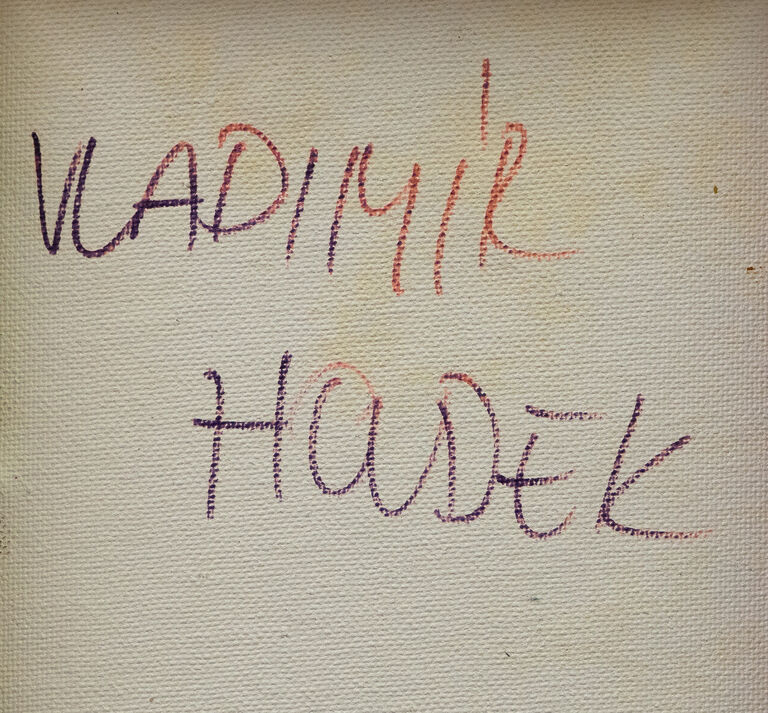 VLADIMÍR
HaDEK